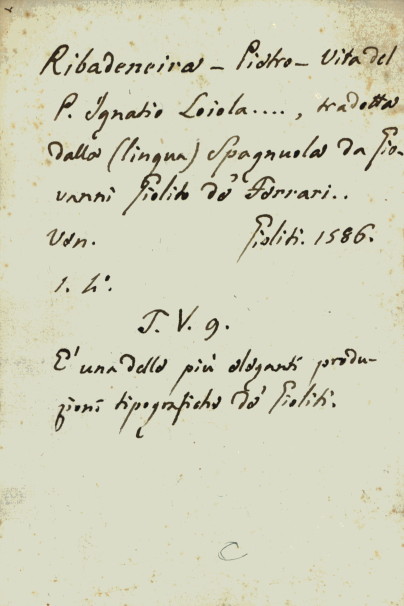 Ribadeneira – Pietro – Vita del
P. Ignatio Loiola...., tradotta
dalla (lingua) Spagnuola da Gio-
vanni Giolito de' Ferrari..
Ven. Gioliti. 1586.
1. 4°.
T. V. 9.
E' una delle più eleganti produ-
zioni tipografiche de' Gioliti.
C